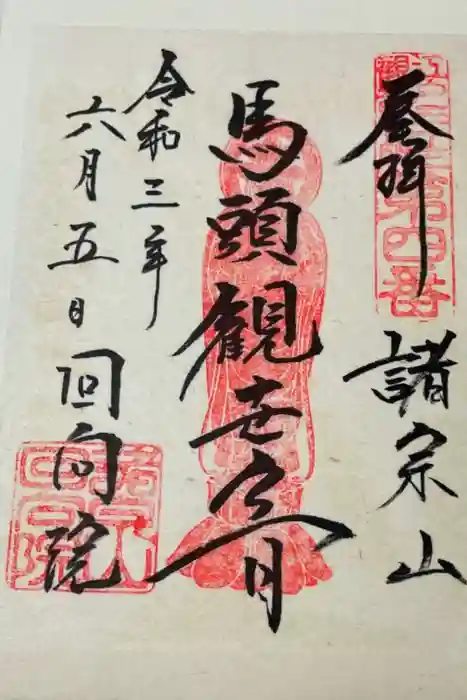 登拝
諸宗山
馬頭観世音
令和三年
六月五日
回向院